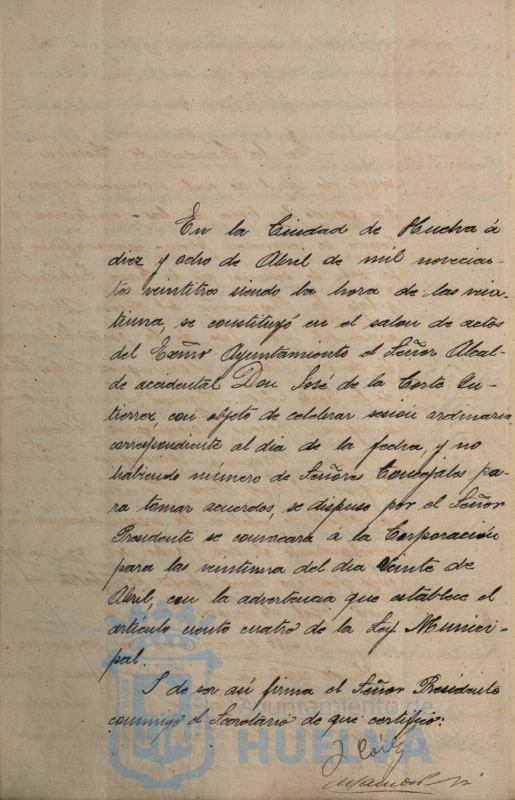 En la Ciudad de Huelva á
diez y ocho de Abril de mil novecien-
tos veintitres siendo la hora de las vein-
tiuna, se constituyó en el salon de actos
del Exmo Ayuntamiento el Señor Alcal-
de accidental Don José de la Corte Gu-
tierrez, con objeto de celebrar sesion ordinaria
correspondiente al dia de la fecha, y no
habiendo número de Señores Concejales pa-
ra tomar acuerdos, se dispuso por el Señor
Presidente se convocara á la Corporación
para las veintiuna del dia veinte de
Abril, con la advertencia que establece el
artículo ciento cuatro de la Ley Munici-
pal.
Y de ser así firma el Señor Presidente
conmigo el Secretario de que certifico:
Ayuntamiento de
HUELVA